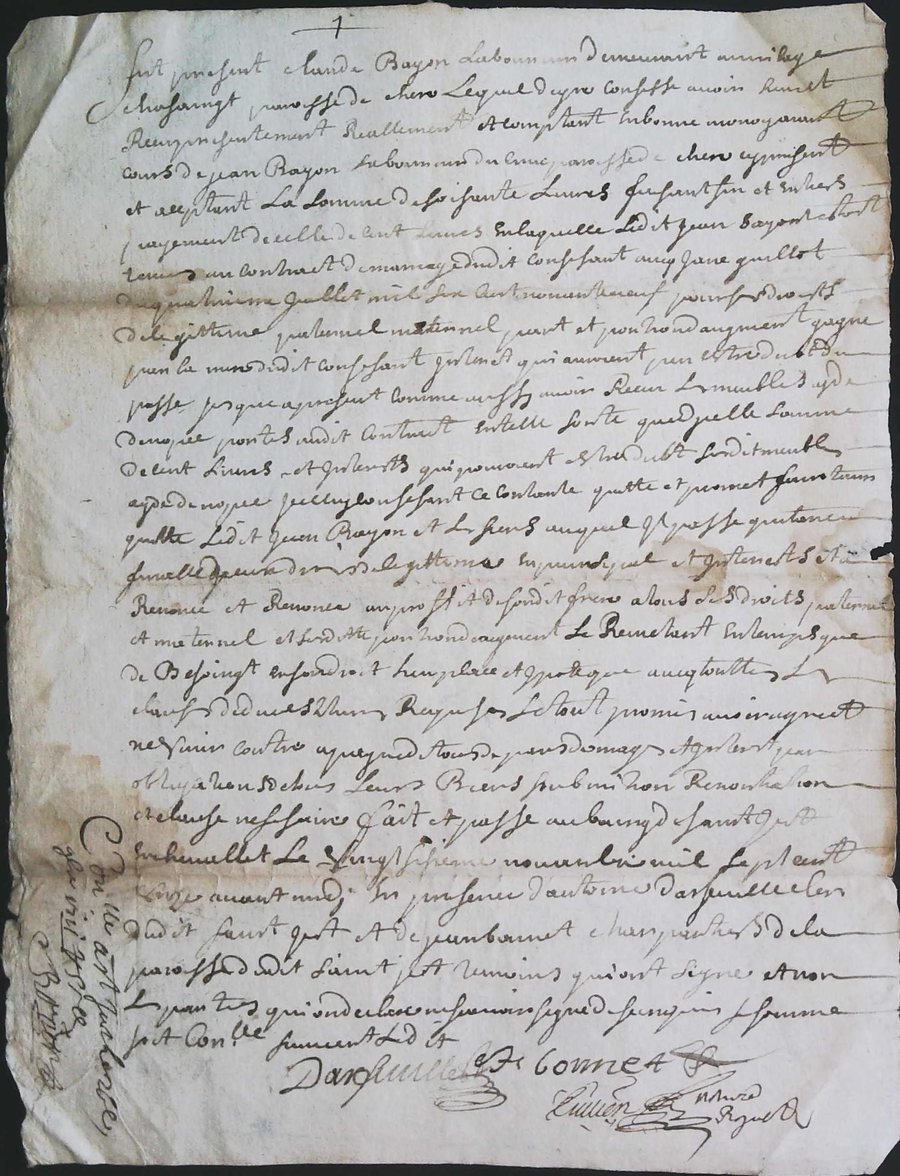 1
fut present claude Bayon Laboureur demeurant au vilage
chasaingt paroisse de chere Lequel de gre confesse avoir heu et
Receu presentement Reallement et comptant en bonne monoy ayant
cours de jean Bayon Laboureur du paroisse de chere cy present
et aceptant La somme de soisante Livres faisant fin et entiers
payement de celle de cent Livres en laquelle Ledit Jean Bayon estoit
tenu au contract de mariage dudit confesant avec Jane guillot
du quatrieme Juillet mil six cent nonante neuf pour ses droicts
de legittime paternel maternel part et portion daugment gagne
par la mere dudit confesant Interest qui auroient peu estre dubt du
passe jusque a present comme aussy avoir Receu Les meubles
de nopce portes audit contract en telle sorte que de pelle somme
de cent Livres et Interests qui pouvoient estre dubt susdit meubles
de nopce Icelluy confesant ce contante quitte et promet faire tenir
quitte Ledit Jean Bayon et Les siens auquel Il passe quitance
finalle de ses droits de legittime en principal et Interests et a
Renonce et Renonce au proffit de sondit frere a tous ses droits paternel
et maternel et sesditte portion daugment Le Remetant en temps que
de Besoingt en son droit lieu place et ypoteque avec touttes Les
clauses Requises Le tout promis avoir agreet
ne venir contre a peyne de tous depans domages et Interest par
obligations de tous Leurs Biens soubmition Renontiation
et clause nessaire fait et passe au bourg de saint Just
en chevallet Le vingt sixieme novembre mil sept cent
unze avant midy en presence dantoine Darfeuille clerc
dudit saint Just et de jean bonnet charpantier de la
paroisse dudit saint Just temoins qui ont signe et non
Les parties qui on declare ne scavoir signe de ce enquis et somme
soit Con.lle suivant Ledit
Darfeuille bonnet
notaire
Royal